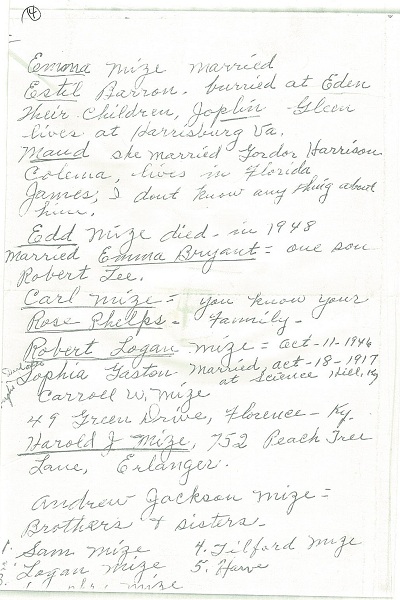 4
Emma Mize married
Estil Barron. burried at Eden
Their Children, Joplin - Gleen
lives at Harrisburg Va.
Maud she married Gordor Harrison
Colema, lives in Florida
James; I dont know any thing about
him.
Edd Mize died - in 1948
Married Emma Bryant = one son
Robert Lee.
Carl Mize = you know your
Rose Phelps - family -
Robert Logan Mize = Oct-11-1946
Sophia Gaston Married, Oct-18-1917
at Science Hill, Ky
Carroll W. Mize
49 Green Drive, Florence - Ky.
Harold J Mize, 752 Peach Tree
Lane, Erlanger.
Andrew Jackson Mize =
Brothers & sisters -
1. Sam Mize
2. Logan Mize
3. Mize
4. Tilford Mize
5. Harve